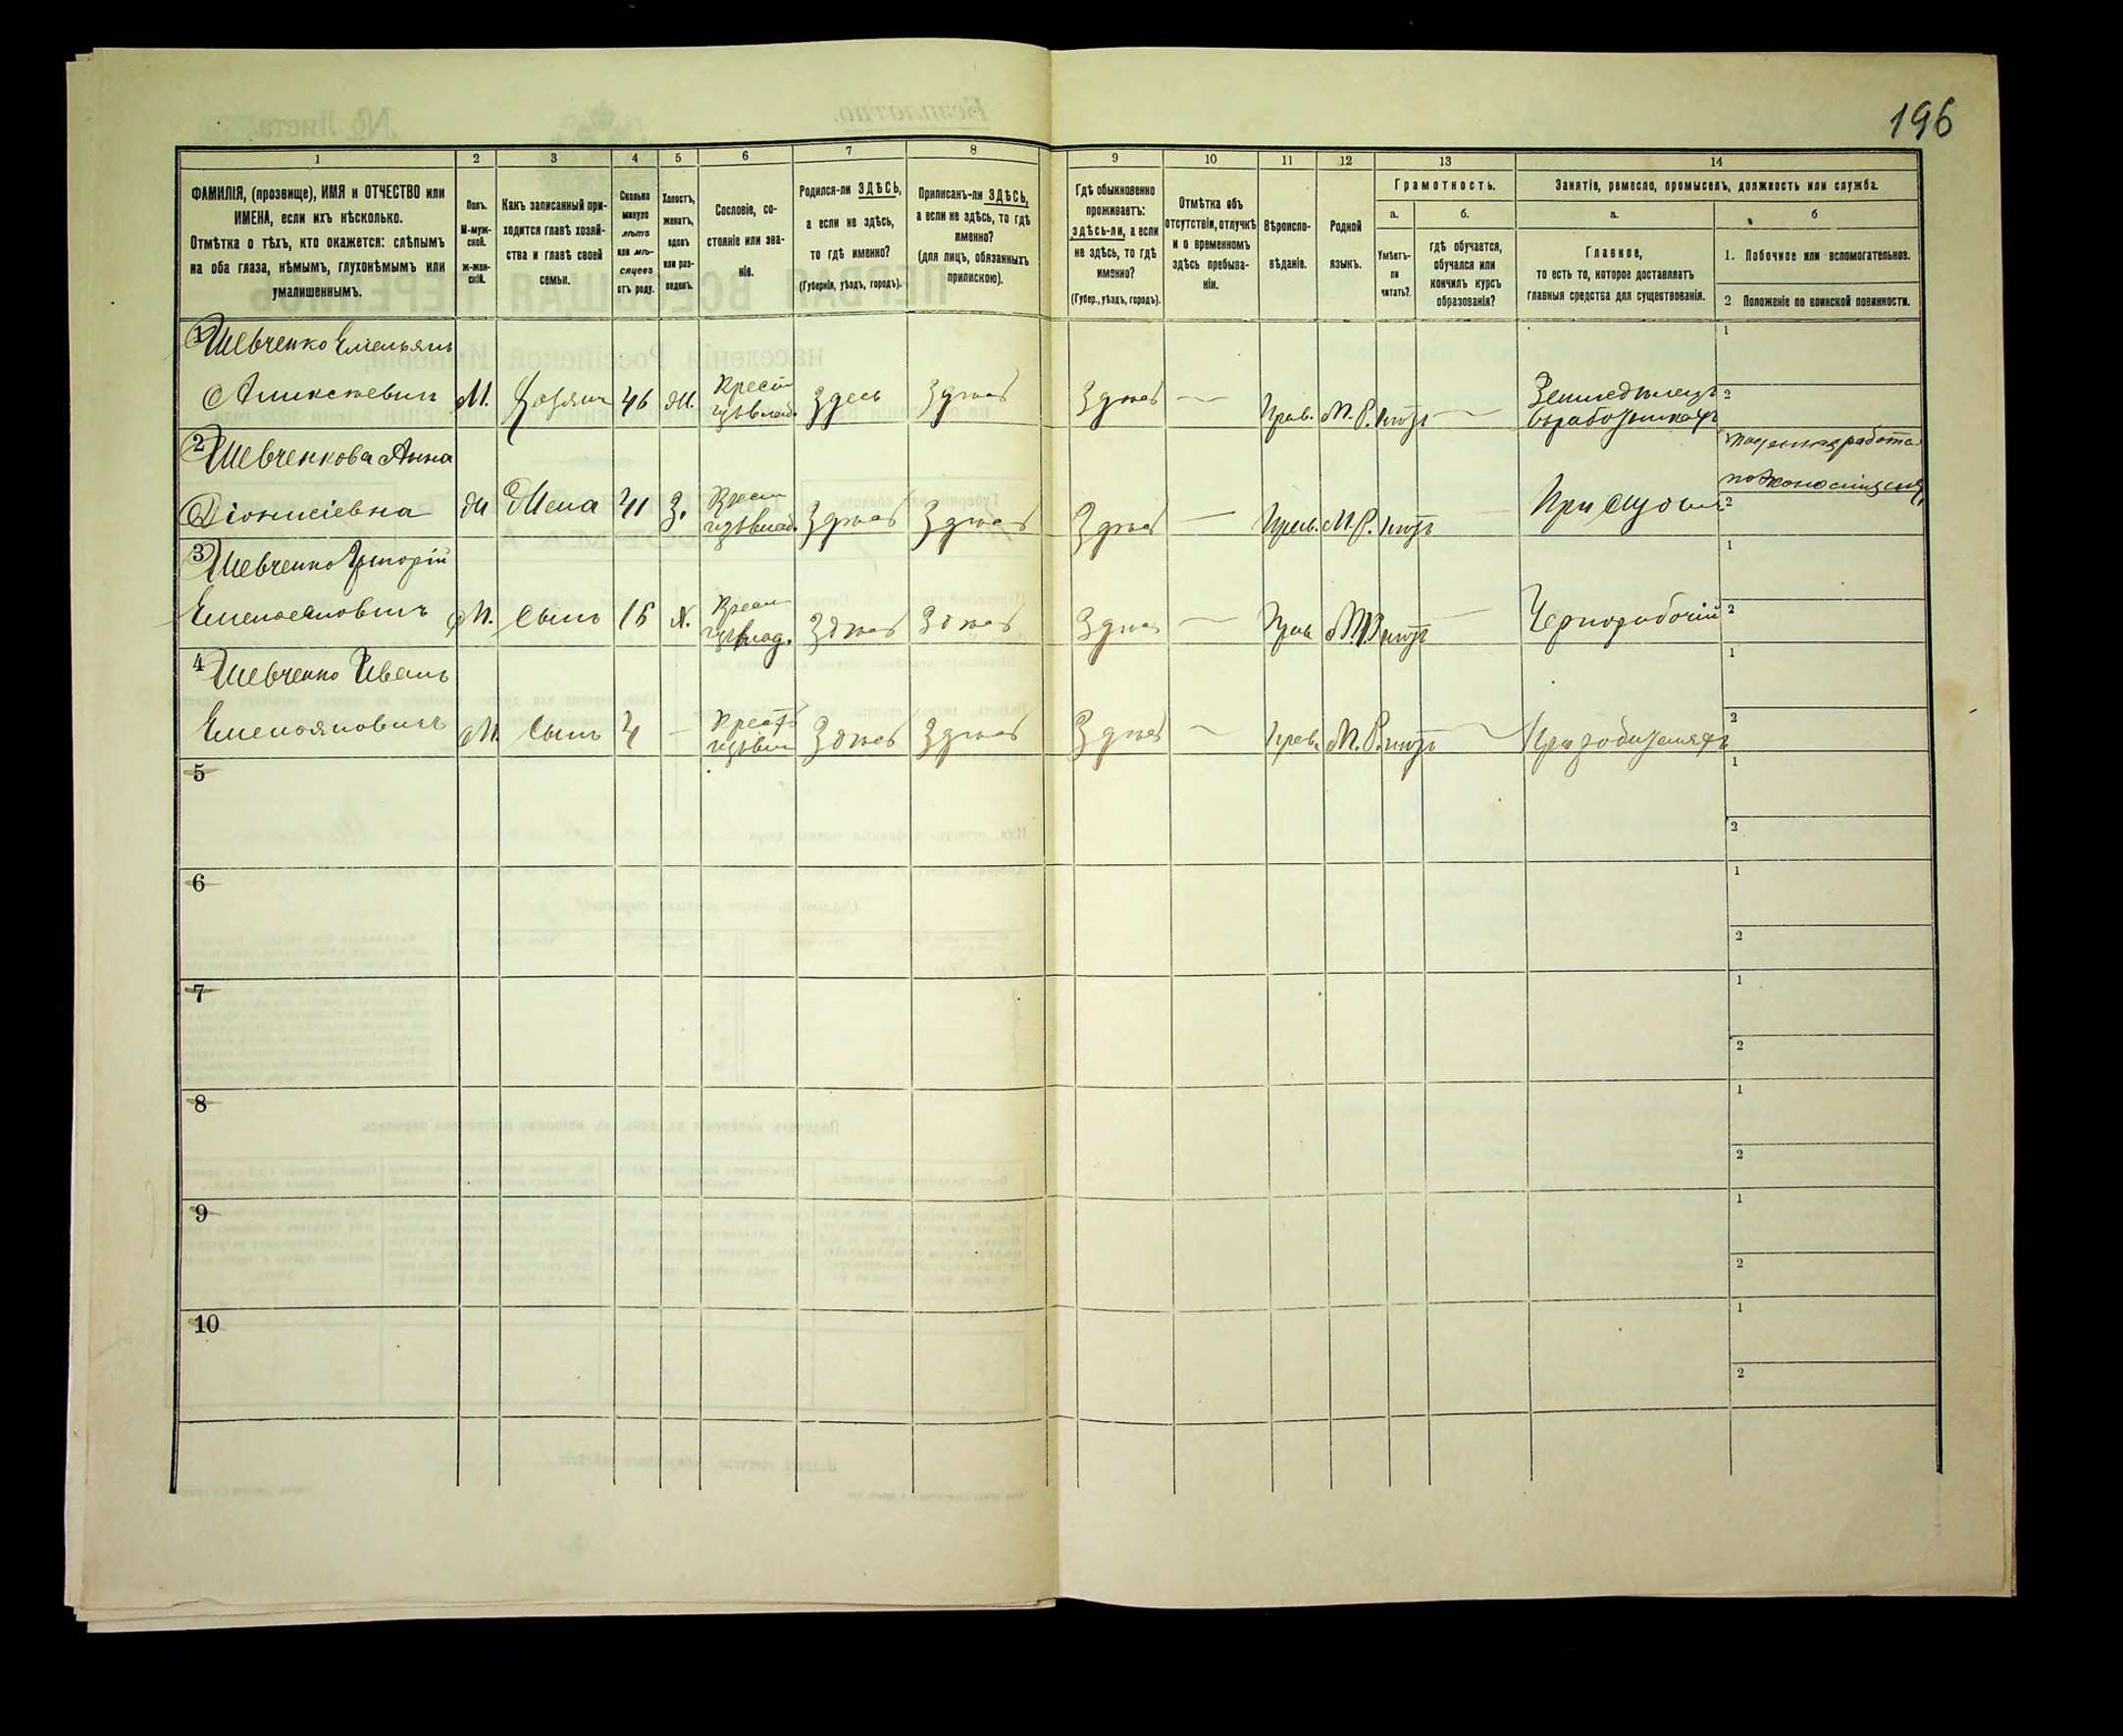 196
1 2 3 4 5 6 7 8 9 10 11 12 13 14
ФАМИЛІЯ, (прозвище), ИМЯ и ОТЧЕСТВО или
ИМЕНА, если ихъ нѣсколько.
Отмѣтка о тѣхъ, кто окажется: слѣпымъ
на оба глаза, нѣмымъ, глухонѣмымъ или
умалишеннымъ.
Полъ.
М-муж-
ской.
ж-жен-
скій.
Какъ записанный при-
ходится главѣ хозяй-
ства и главѣ своей
семьи.
Сколько
минуло
лѣтъ
или мѣ-
сяцевъ
отъ роду.
Холостъ,
женатъ,
вдовъ
или раз-
веденъ.
Сословіе, со-
стояніе или зва-
ніе.
Родился-ли ЗДѢСЬ,
а если не здѣсь,
то гдѣ именно?
(Губернія, уѣздъ, городъ).
Приписанъ-ли ЗДѢСЬ,
а если не здѣсь, то гдѣ
именно?
(для лицъ, обязанныхъ
припискою).
Гдѣ обыкновенно
проживаетъ:
здѣсь-ли, а если
не здѣсь, то гдѣ
именно?
(Губер., уѣздъ, городъ).
Отмѣтка объ
отсутствіи, отлучкѣ
и о временномъ
здѣсь пребыва-
ніи.
Вѣроиспо-
вѣданіе.
Родной
языкъ.
Грамотность.
а. б.
Умѣетъ-
ли
читать?
гдѣ обучается,
обучался или
кончилъ курсъ
образованія?
Занятіе, ремесло, промыселъ, должность или служба.
а. б
Главное,
то есть то, которое доставляетъ
главныя средства для существованія.
1. Побочное или вспомогательное.
2 Положеніе по воинской повинности.
1 Шевченко Емельянъ 1
М. Хозяинъ 46 Ж. Крест Здесь Здѣсь Здѣсь — Прав. М.Р. нѣтъ — Земледѣлецъ 2
2 Шевченкова Анна
Діонисіевна Ж Жена 41 З. Крест Здѣсь Здѣсь Здѣсь — Прав. М.Р. нѣтъ При мужѣ 2
3 Шевченко Григорій 1
Емельяновичъ М. Сынъ Х. Крест Здѣсь Здѣсь Здѣсь — Прав М.Р нѣтъ — Чернорабочій 2
4 Шевченко Иванъ 1
Емельяновичъ М. Сынъ 4 — Крест Здѣсь Здѣсь Здѣсь — Прав. М.Р. нѣтъ — 2
5 1
2
6 1
2
7 1
2
8 1
2
9 1
2
10 1
2